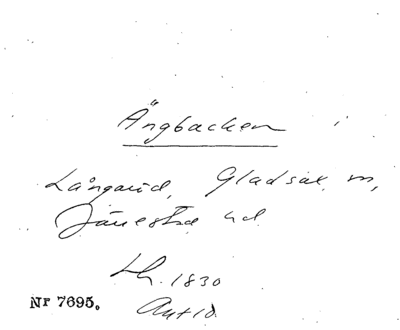 Ängbacken
Långaröd, Gladsax m,
Järrestad hd
Lh. 1830
Nr 7695.